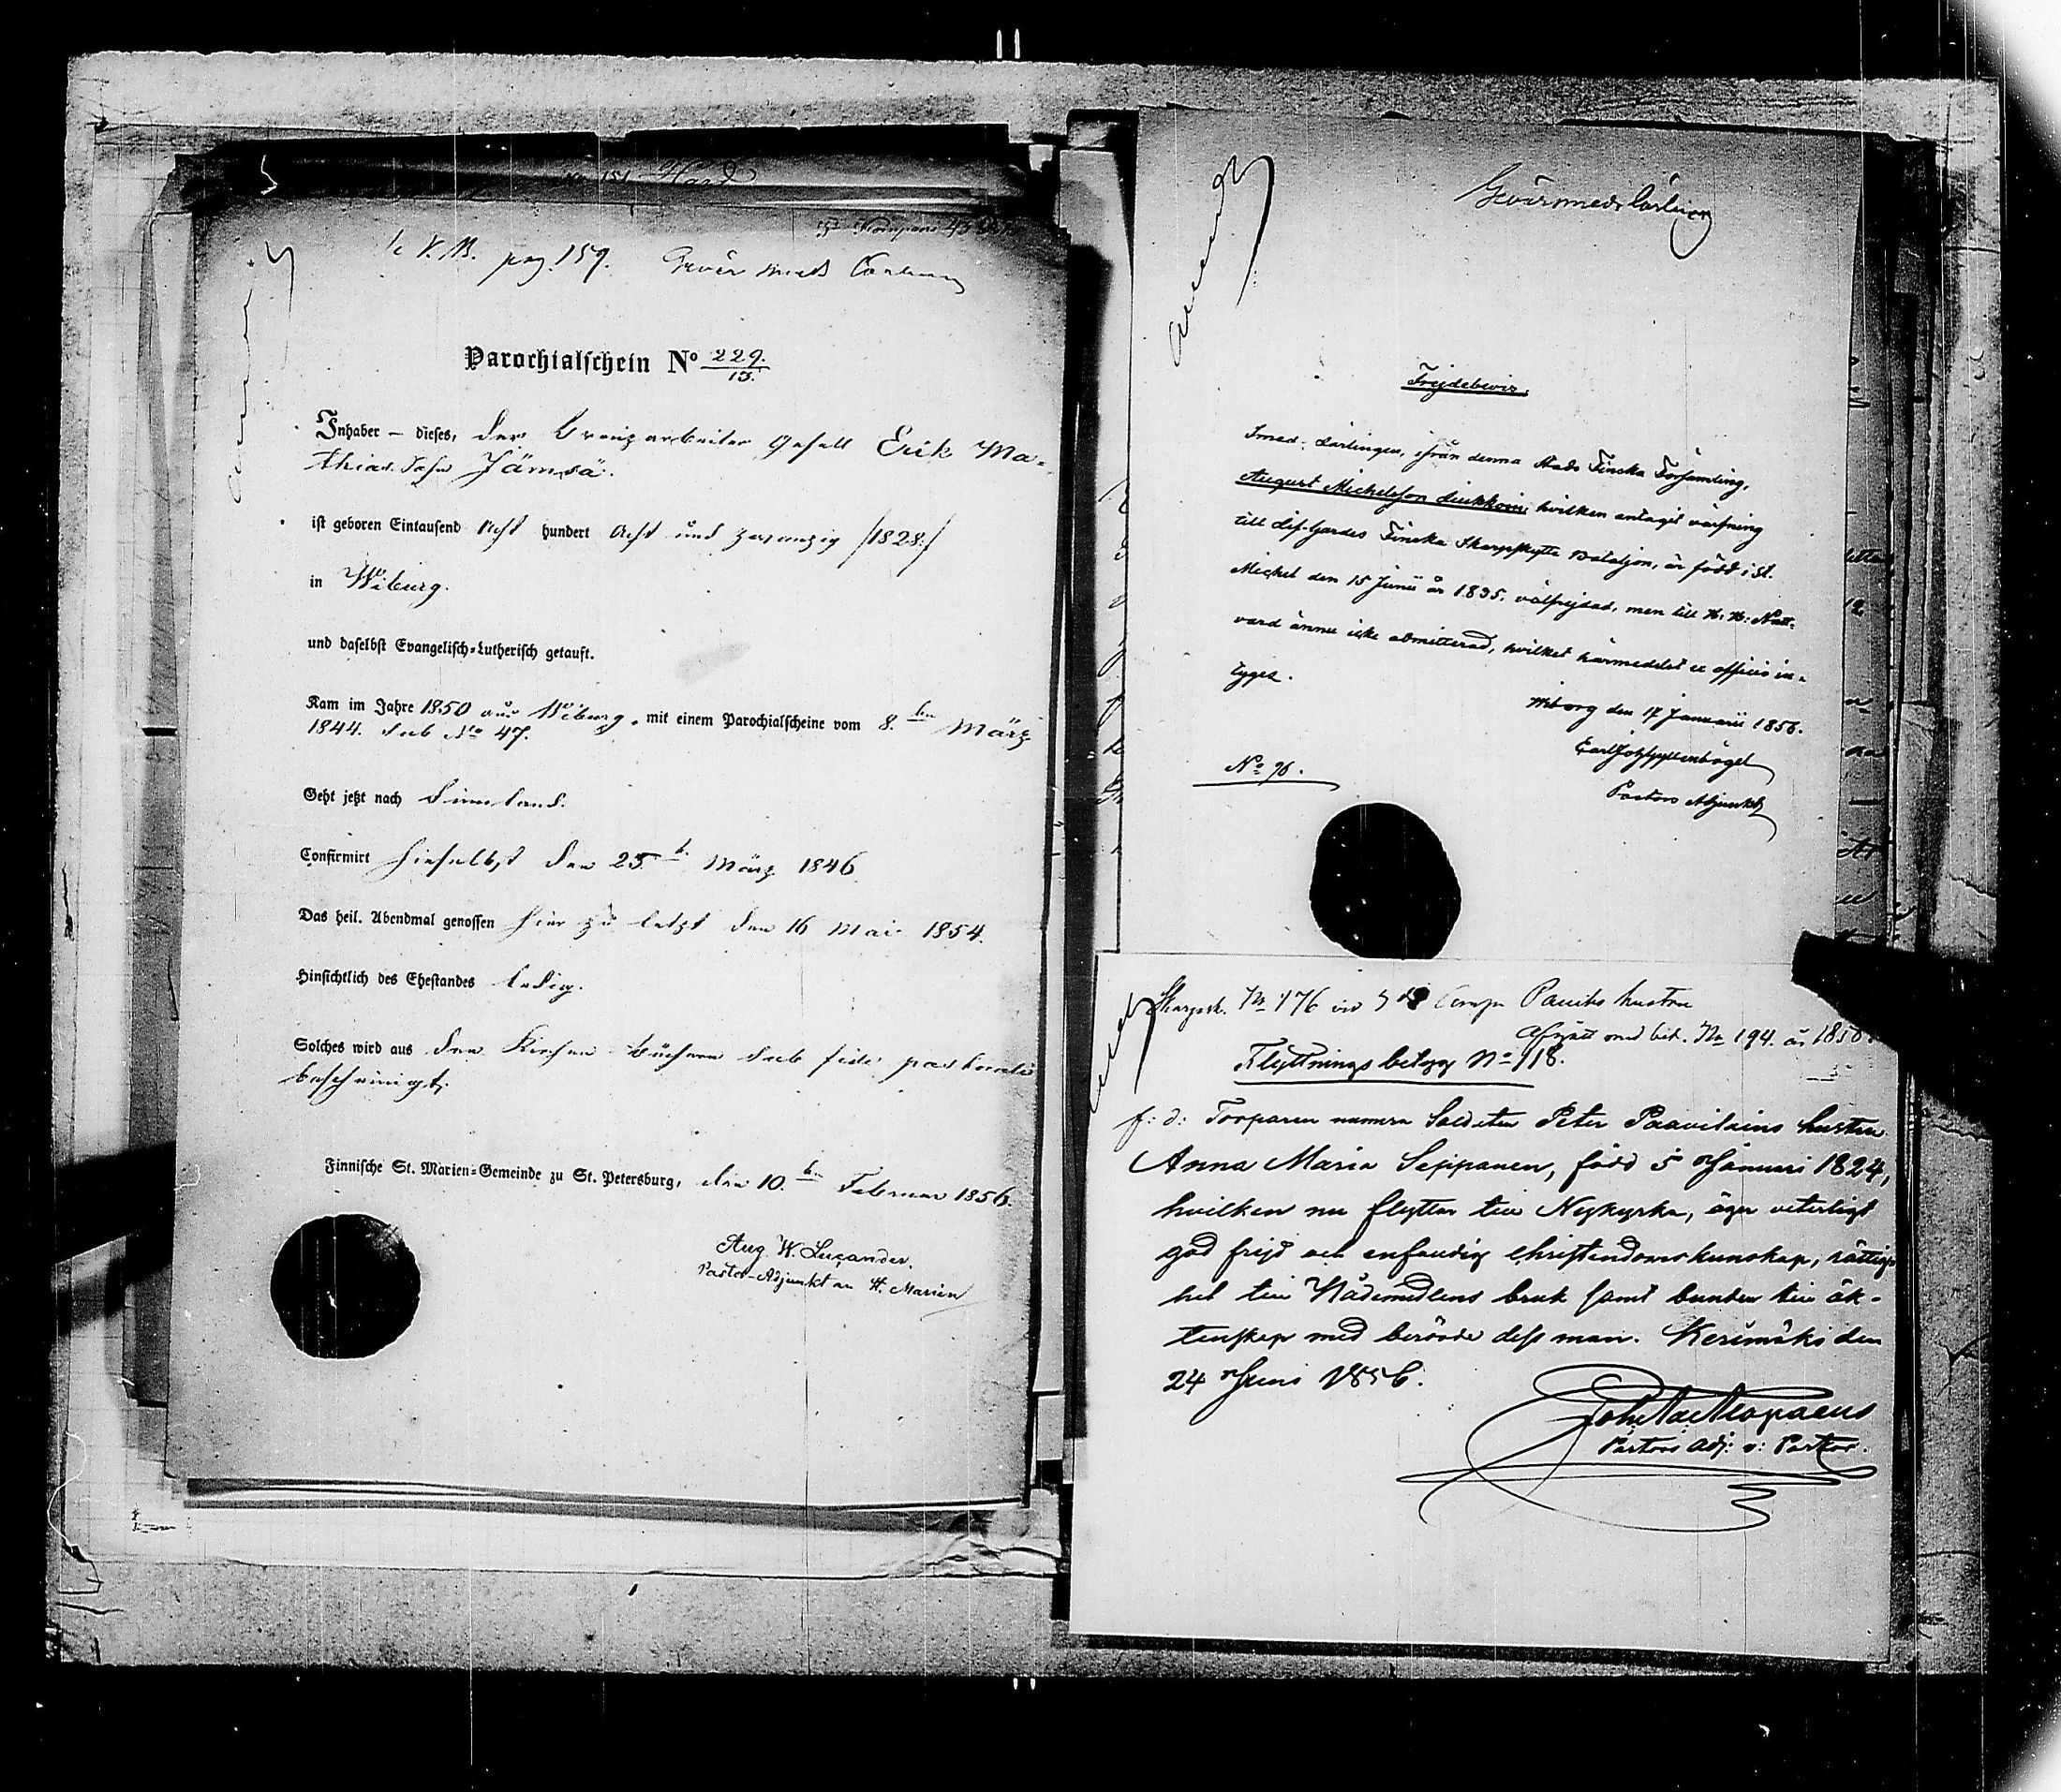 pag. 159. Gevär smeds Lärling
Parochialschein No 229./13.
Inhaber – dieses, der Kreuzarbeiter Gesell Erik Ma-
thias Sohn Jämsä.
ist geboren Eintausend Acht hundert Acht und zwanzig /:1828:/
in Wiburg.
und daselbst Evangelisch-Lutherisch getauft.
Kam im Jahre 1850 aus Wiburg, mit einem Parochialscheine vom 8.ten März
1844. sub No 47.
Geht jetzt nach Finnland.
Confirmirt hieselbst den 25.t. März 1846
Das heil. Abendmal genossen hier zu letzt den 16 Mai 1854.
Hinsichtlich des Ehestandes ledig.
Solches wird aus den Kirchen-Büchern sub fide pastorali
bescheinigt.
Finnische St. Marien-Gemeinde zu St. Petersburg, den 10.ten Februar 1856.
Aug. W. Lucander.
Pastor-Adjunkt an St. Marien
Gevärsmeds Lärling
Frejdebevis.
Smed-Lärlingen, ifrån denna Stads Finska Församling,
August Michelsson Liukkoin, hvilken antagit värfning
till Lif-Gardes Finska Skarpskytte Bataljon, är född i St.
Michel den 15 Junii år 1835. välfrejdad, men till H. H. Natt-
vard ännu icke admitterad, hvilket härmedelst ex officio in-
tyges.
Wiborg den 17 Januarii 1856.
Pastors Adjunkt
No 96.
Skarpsk. No 176 vid 3de Comp Pauihs hustru
Afgått med bet. No 194. år 1858.
Flyttnings betyg No 118.
f: d: Torparen numera Soldaten Peter Paavilains hustru
Anna Maria Seppänen, född 5 Januari 1824,
hvilken nu flyttar till Nykyrka, äger veterligt
god frejd och enfaldig christendomskunskap, rättig-
het till Nådemedlens bruk samt bunden till äk-
tenskap med berörde dess man. Kerimäki den
24 Juni 1856.
Pastors Adj: v: Pastor.